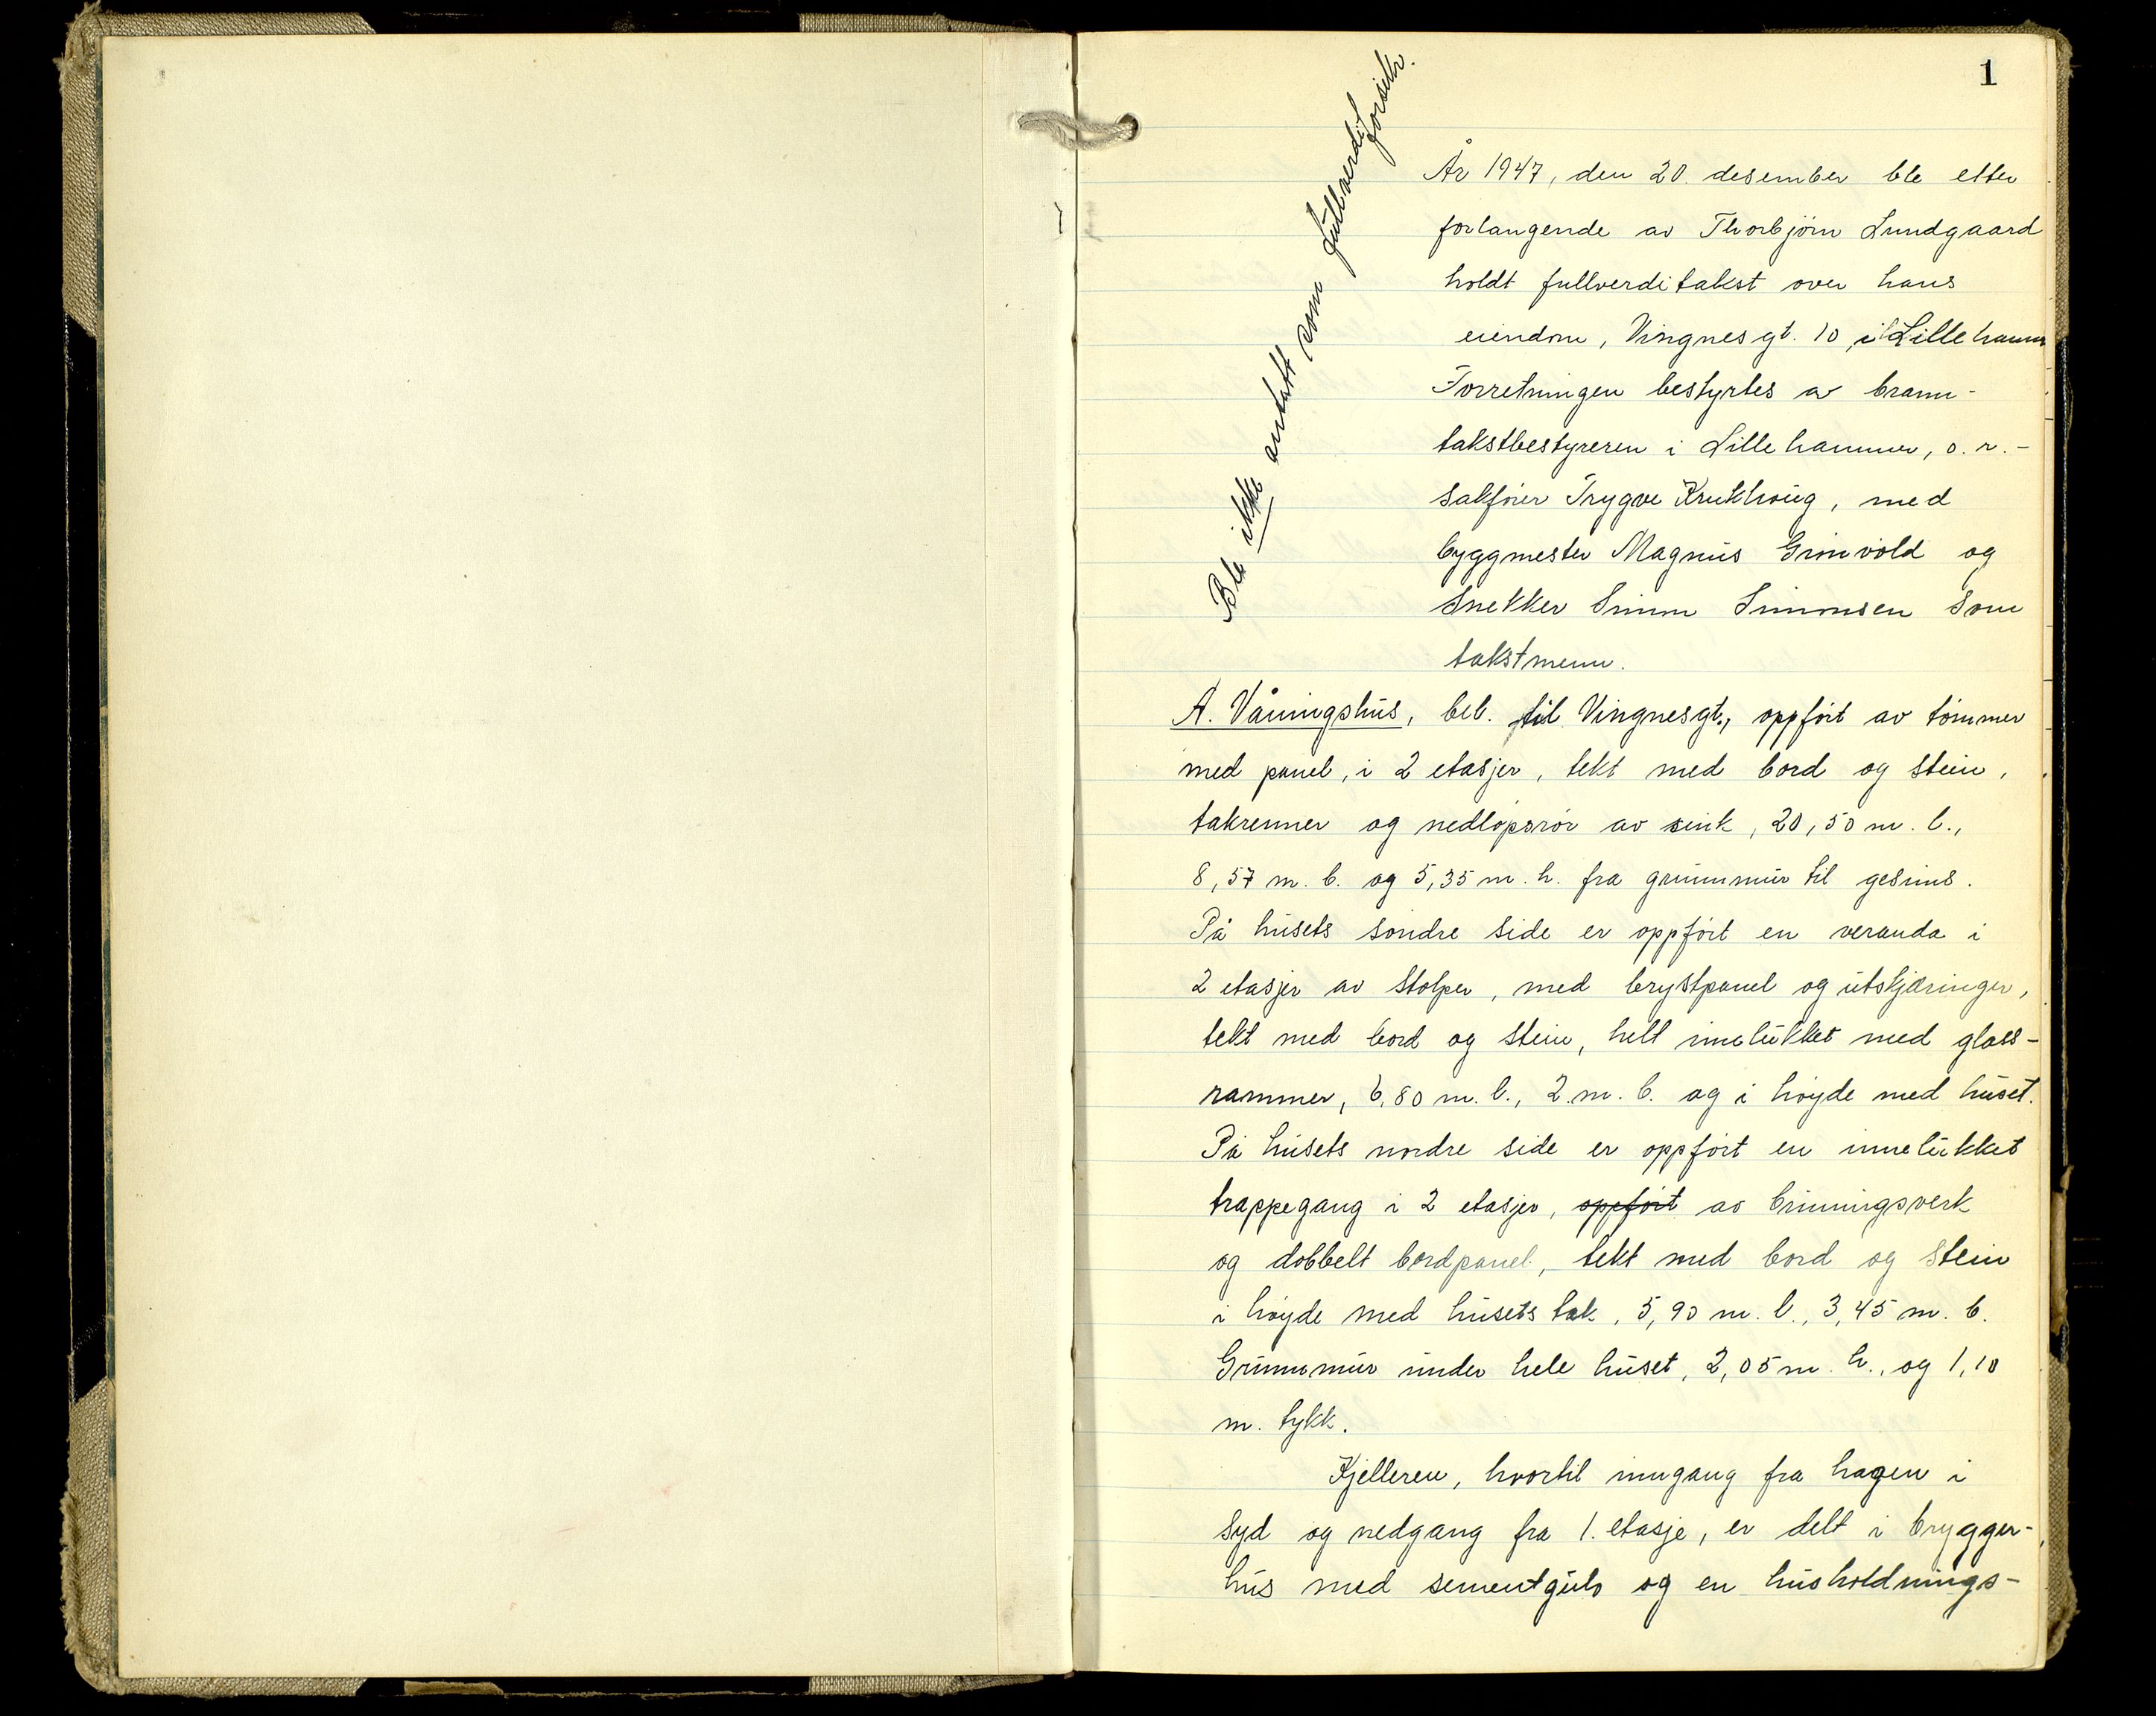 1
Ble ikke antatt som fullverdiforsikr.
År 1947, den 20. desember ble etter
forlangende av Thorbjörn Lundgaard
holdt fullverditakst over hans
eiendom, Vingnesgt. 10 i Lillehamm
Forretningen bestyrtes av brann-
takstbestyreren i Lillehammer, o.r.-
sakförer Trygve Krukhaug, med
byggmester Magnus Grönvold og
snekker Simon Simonsen som
takstmenn.
A. Våningshus, bel. til Vingnesgt., oppfört av tömmer
med panel, i 2 etasjer, tekt med bord og stein,
takrenner og nedlöpsrör av sink, 20,50 m. l.,
8,57 m. b. og 5,35 m. h. fra grunnmur til gesims.
På husets söndre side er oppfört en veranda i
2 etasjer av stolper, med brystpanel og utskjæringer,
tekt med bord og stein, helt innelukket med glass-
rammer, 6,80 m. l., 2 m. b. og i höyde med huset.
På husets nordre side er oppfört en innelukket
trappegang i 2 etasjer, oppfört av binningsverk
og dobbelt bordpanel, tekt med bord og stein
i höyde med husets tak, 5,90 m. l., 3,45 m. b.
Grunnmur under hele huset, 2,05 m. h., og 1,10
m. tykk.
Kjelleren, hvortil inngang fra hagen i
syd og nedgang fra 1. etasje, er delt i brygger-
hus med sementgulv og en husholdnings-